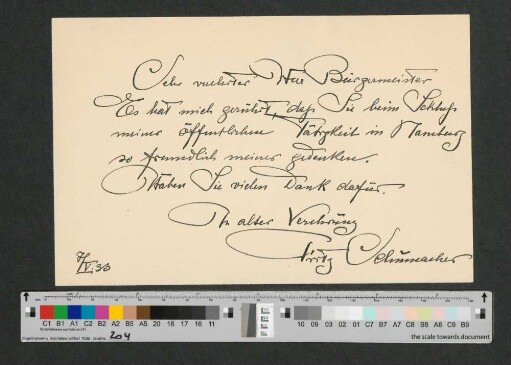 Sehr verehrter Herr Bürgermeister
Es hat mich gerührt, daß Sie beim Schluß
meiner öffentlichen Tätigkeit in Hamburg
so freundlich meiner gedenken.
Haben Sie vielen Dank dafür.
In alter Verehrung
Fritz Schumacher
7/IV.33
C1 B1 A1 C2 B2 A2 B5 A5 20 18 17 16 11
10 09 03 02 01 C7 B7 A7 C8 B8 A8 C9 B9
204
the scale towards document